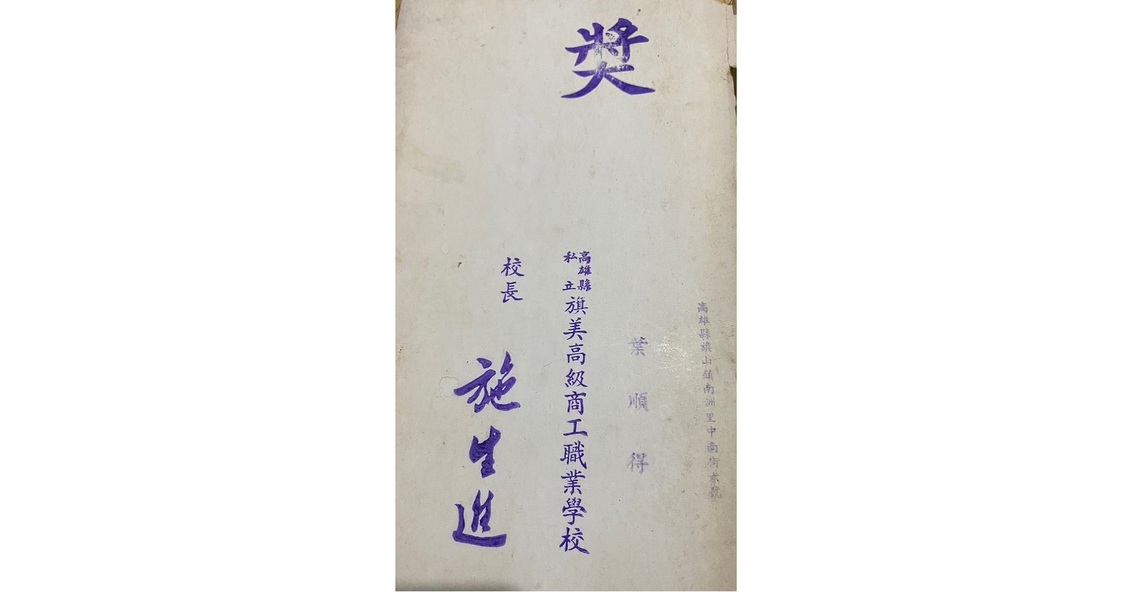 獎
高雄縣旗山鎮南洲里中南街
葉順得
高雄縣私立旗美高級商工職業學校
校長
施生進